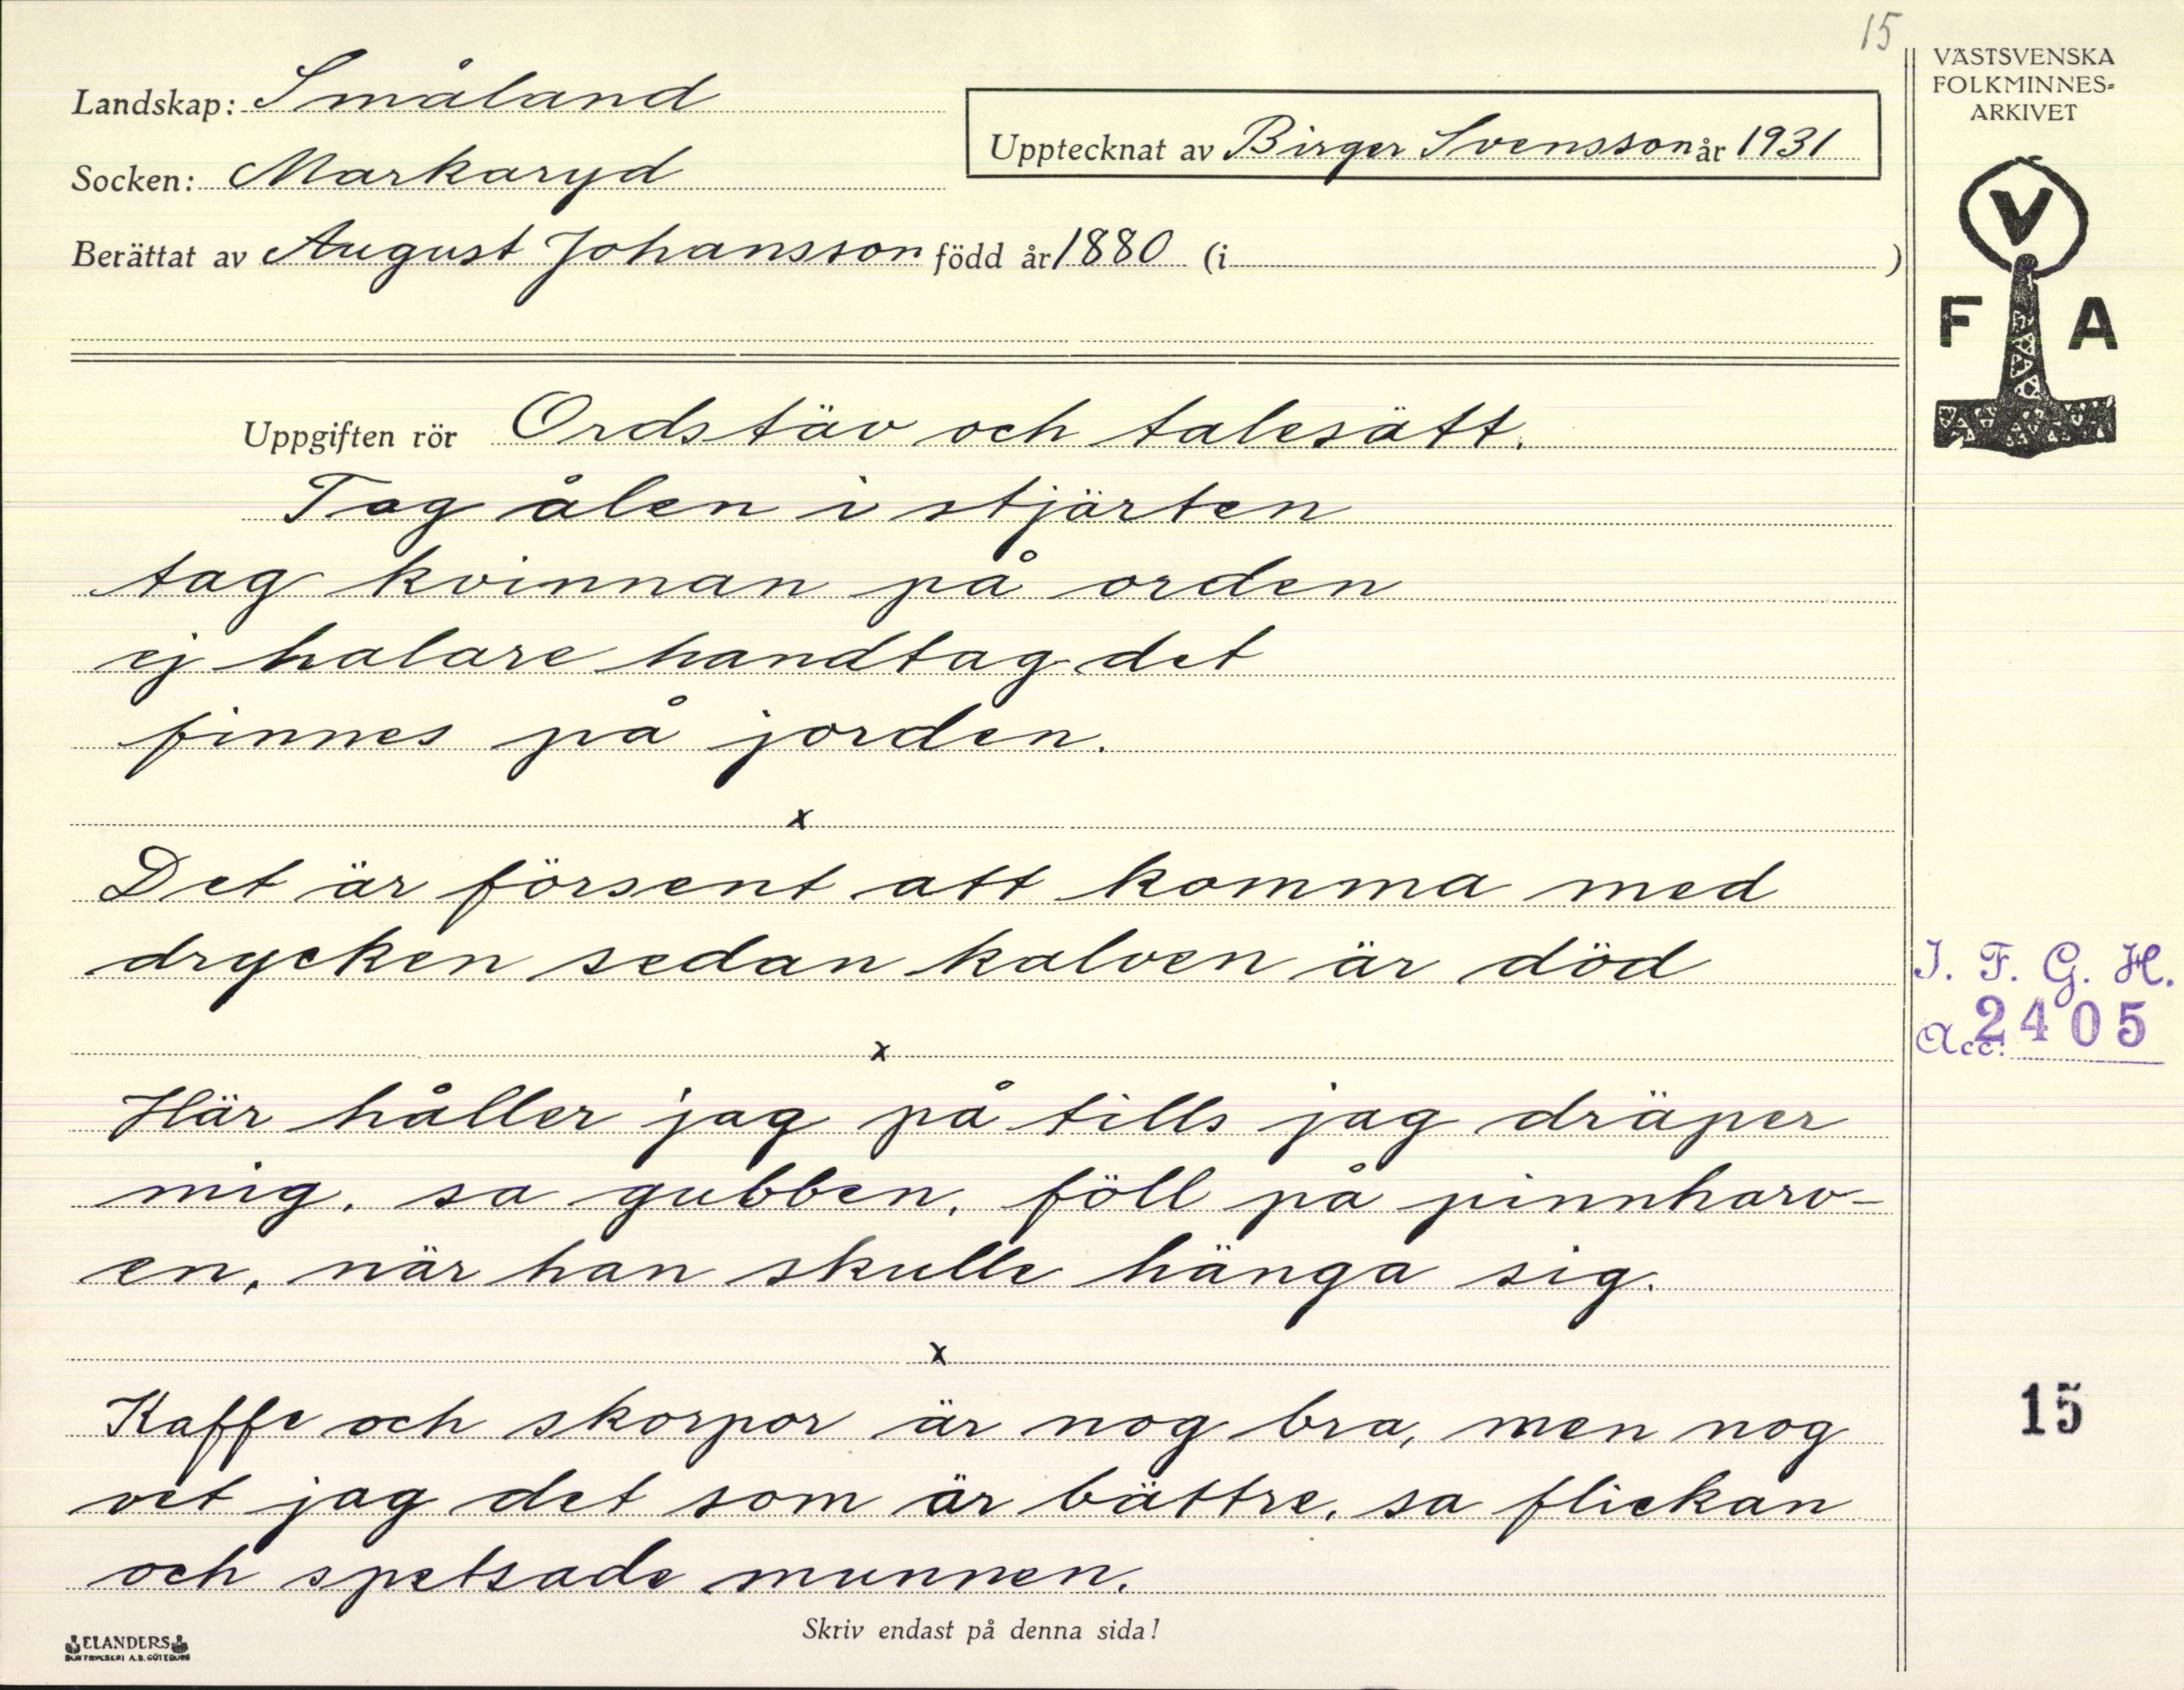 15
Landskap: Småland
Upptecknat av Birger Svensson år 1931
Socken: Markaryd
Berättat av August Johansson född år 1880 (i )
VÄSTSVENSKA
FOLKMINNES-
ARKIVET
V
F A
Uppgiften rör Ordstäv och talesätt.
Tag ålen i stjärten
tag kvinnan på orden
ej halare handtag det
finnes på jorden.
x
Det är försent att komma med
drycken sedan kalven är död
I. F. G. H.
Acc: 2405
x
Här håller jag på tills jag dräper
mig, sa gubben, föll på pinnharv-
en, när han skulle hänga sig.
x
Kaffe och skorpor är nog bra, men nog
vet jag det som är bättre, sa flickan
och spetsade munnen.
15
Skriv endast på denna sida!
ELANDERS
BOKTRYCKERI A.B. GÖTEBORG